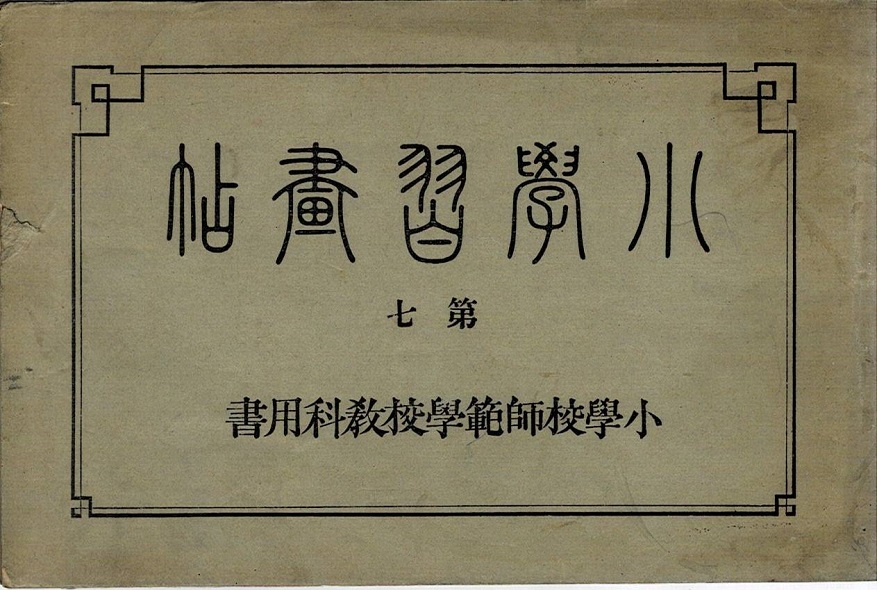 小學習畫帖
第七
小學校師範學校教科用書